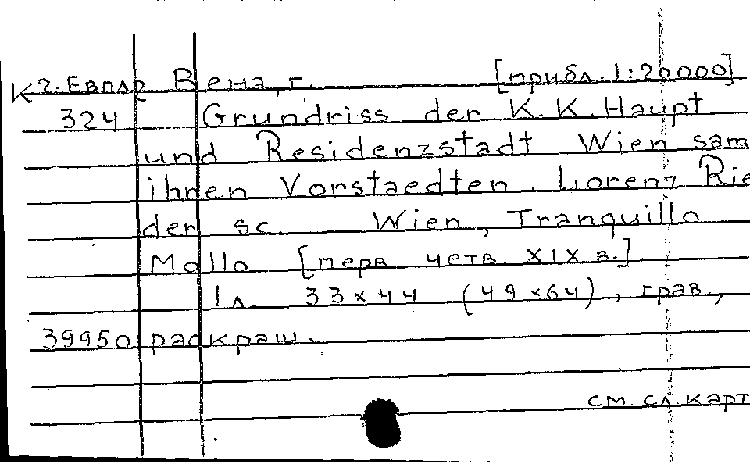 К 2. Евпл2 Вена, г. [прибл. 1:20000]
324 Grundriss der K. K. Haupt
und Residenzstadt Wien sam
ihren Vorstaedten. Lorenz Rie
der sc. Wien, Tranquillo
Mollo [перв. четв. XIX в.]
1 л. 33×44 (49×64), грав.,
39950 раскраш.
см. сл. карт